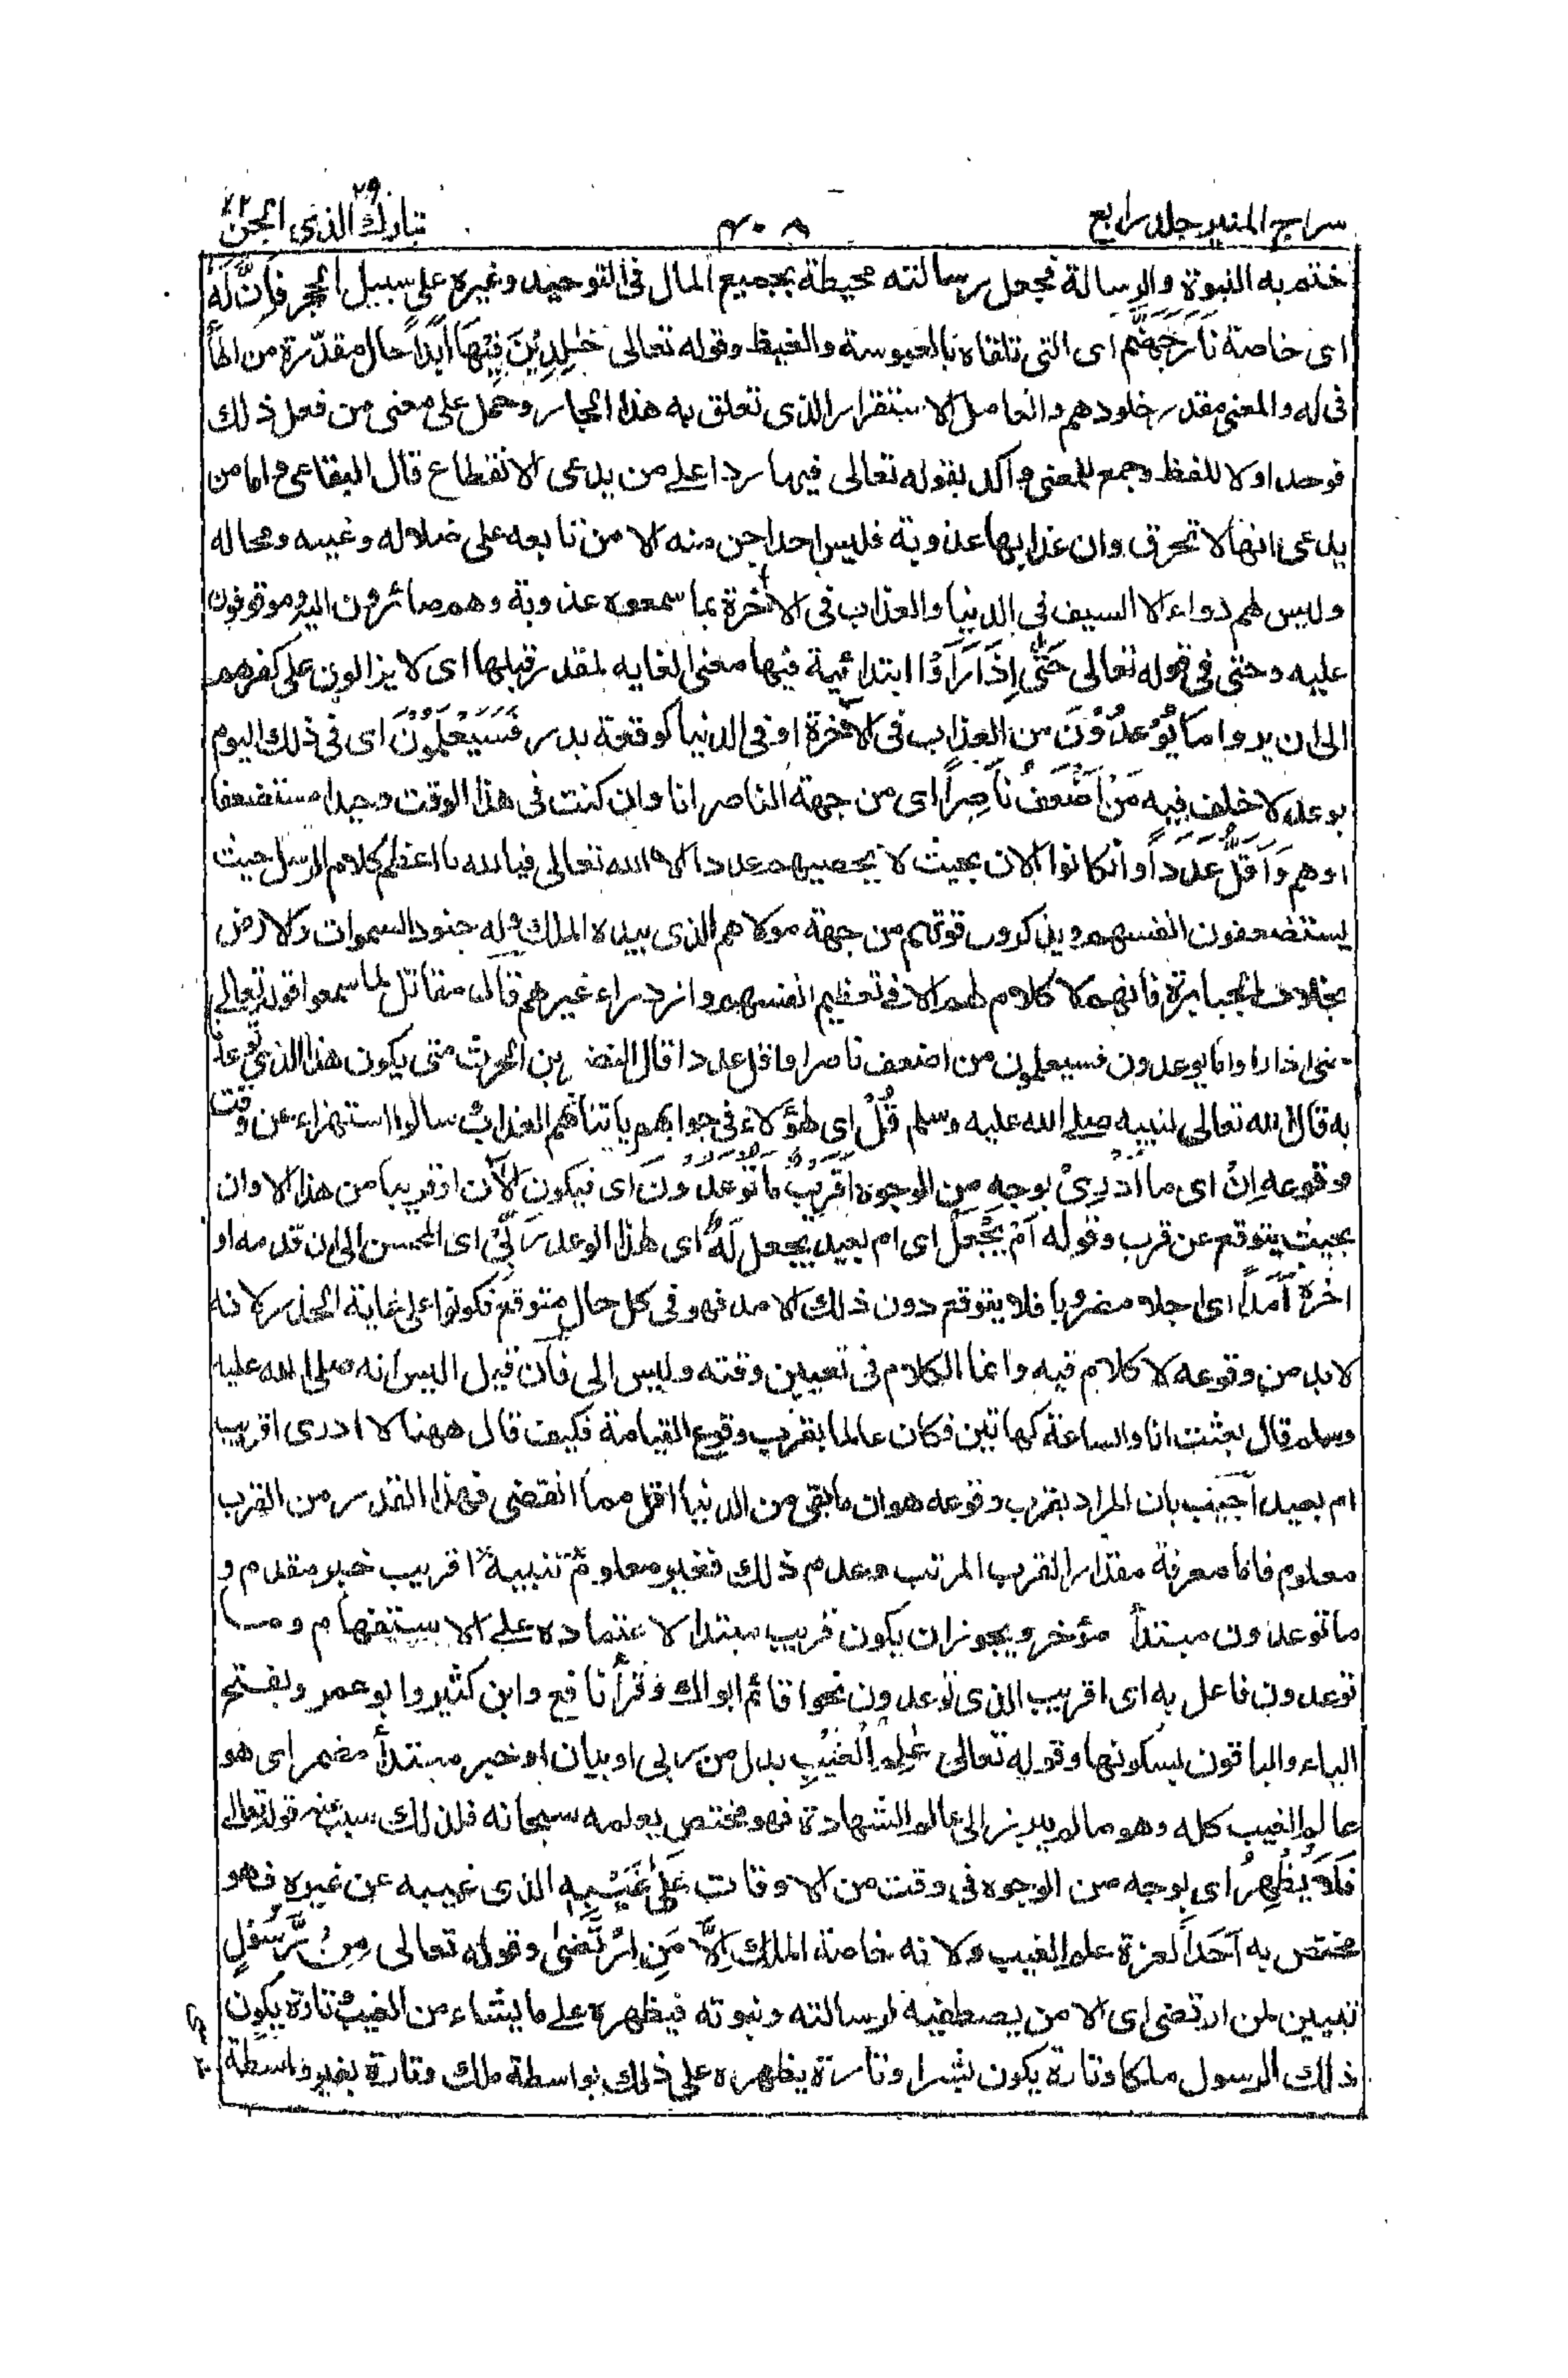 سراج المنير جلد رابع
۴۰۸
تبارك الذى ۲۹ الجن ۷۲
ختم به النبوة والرسالة فجعل رسالته محيطة بجميع المال فى التوحيد وغيره على سبيل الحجر فَاِنَّ لَهٗ
اى خاصة نَارَ جَهَنَّمَ اى التى تلقاه بالعبوسة والغيظ وقوله تعالى خٰلِدِيْنَ فِيْهَا اَبَدًا حال مقدّرة من الهأ
فى له والمعنى مقدر خلودهم والعامل الاستقرار الذى تعلق به هذا الجار وحمل على معنى من فعل ذلك
فوحد اولا للفظ وجمع للمعنى واكد بقوله تعالى فيها ردا على من يدعى الانقطاع قال البقاعى واما من
يدعى انها لا تحرق وان عذابها عذوبة فليس احد اجن منه الا من تابعه على ضلاله وغيه ومحاله
وليس لهم دواء الا السيف فى الدنيا والعذاب فى الاٰخرة بما سمعوه عذوبة وهم صائرون اليه وموقوفون
عليه وحتى فى قوله تعالى حَتّٰى اِذَا رَاَوْا ابتدائية فيها معنى الغايه لمقدر قبلها اى لا يزالون على كفرهم
الى ان يروا مَا يُوْعَدُوْنَ من العذاب فى الاٰخرة او فى الدنيا كوقعة بدر فَسَيَعْلَمُوْنَ اى فى ذلك اليوم
بوعد لا خلف فيه مَنْ اَضْعَفُ نَاصِرًا اى من جهة الناصر انا وان كنت فى هذا الوقت وحيدا مستضعفا
اوهم وَاَقَلُّ عَدَدًا وان كانوا الان بحيث لا يحصيهم عددا الا الله تعالى فيا لله ما اعظم كلام الرسل حيث
يستضعفون انفسهم ويذكرون قوتهم من جهة مولاهم الذى بيده الملك وله جنود السموات والارض
بخلاف الجبابرة فانهم لا كلام لهم الا فى تعظيم انفسهم وازدراء غيرهم قال مقاتل لما سمعوا قوله تعالى
حتى اذا راوا ما يوعدون فسيعلمون من اضعف ناصرا واقل عددا قال النضر بن الحرث متى يكون هذا الذى توعدنا
به قال الله تعالى لنبيه صلى الله عليه وسلم قُلْ اى لهؤلاء فى جوابهم العذاب سالوا استهزاء عن وقت
وقوعه اِنْ اى ما اَدْرِيْ بوجه من الوجوه اَقَرِيْبٌ مَا تُوْعَدُوْنَ اى فيكون الاٰن او قريبا من هذا الاوان
بحيث يتوقع عن قرب وقوله اَمْ يَجْعَلُ اى ام بعيد يجعل لَهٗ اى لهذا الوعد رَبِّيْ اى المحسن الى ان قدمه او
اخره اَمَدًا اى اجلا مضروبا فلا يتوقع دون ذلك الامد فهو فى كل حال متوقع فكونوا على غاية الحذر لانه
لا بد من وقوعه لا كلام فيه وانما الكلام فى تعيين وقته وليس الى فان قيل اليس انه صلى الله عليه
وسلم قال بعثت انا والساعة كهاتين فكان عالما بقرب وقوع القيامة فكيف قال ههنا لا ادرى اقريب
ام بعيد اجيب بان المراد بقرب وقوعه هو ان ما بقى من الدنيا اقل مما انقضى فهذا القدر من القرب
معلوم فاما معرفة مقدار القرب المرتب وعدم ذلك فغير معلوم تنبيه اقريب خبر مقدم و
ما توعدون مبتدأ مؤخر ويجوز ان يكون قريب مبتدا لاعتماده على الاستفهام وما
توعدون فاعل به اى اقريب الذى توعدون نحوا قائم ابواك وقرأ نافع وابن كثير وابو عمر وبفتح
الياء والباقون بسكونها وقوله تعالى عٰلِمُ الْغَيْبِ بدل من ربى او بيان او خبر مبتدأ مضمر اى هو
عالم الغيب كله وهو ما لم يبرز الى عالم الشهادة فهو مختص بعلمه سبحانه فلذلك سبب عنه قوله تعالى
فَلَا يُظْهِرُ اى بوجه من الوجوه فى وقت من الاوقات عَلٰى غَيْبِهٖ الذى غيبه عن غيره فهو
مختص به اَحَدًا لعزة علم الغيب ولانه خاصة الملك اِلَّا مَنِ ارْتَضٰى وقوله تعالى مِنْ رَّسُوْلٍ
تبيين لمن ارتضى اى الا من يصطفيه لرسالته ونبوته فيظهره على ما يشاء من الغيب تارة يكون
ذلك الرسول ملكا وتارة يكون بشرا وتارة يظهره على ذلك بواسطة ملك وتارة بغير واسطة